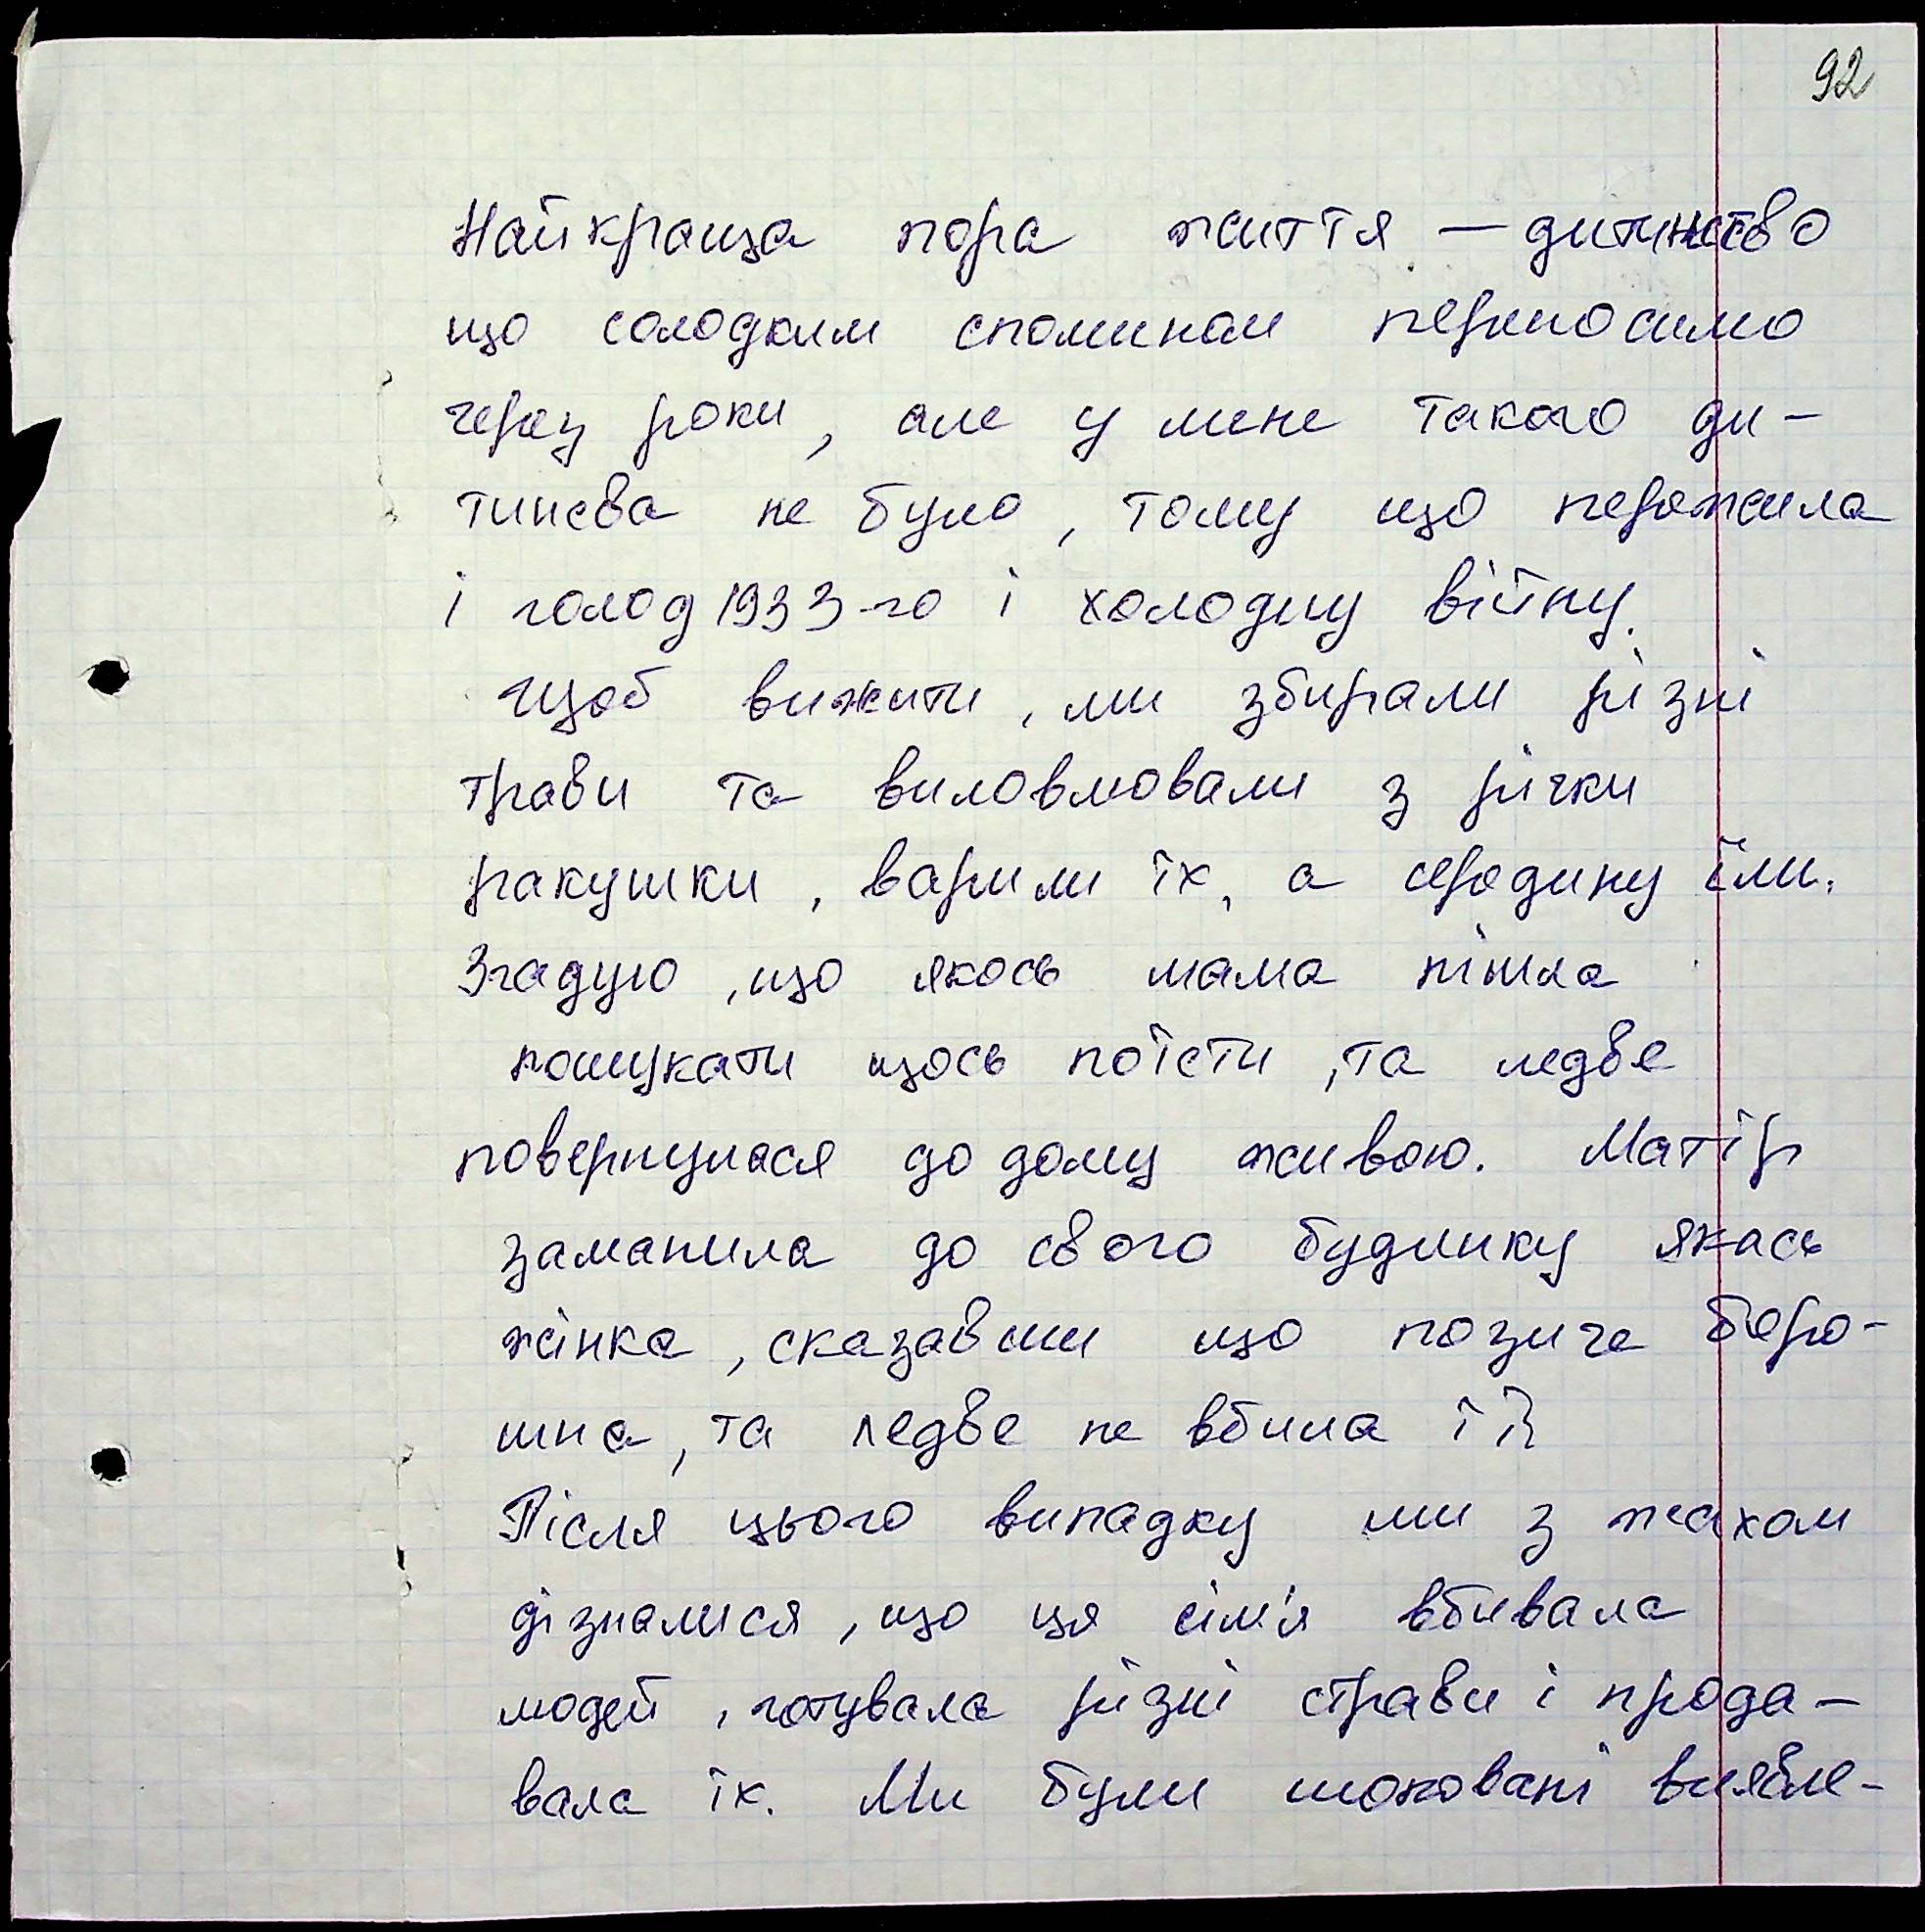 92
Найкраща пора життя — дитинство
що солодким спомином переносимо
через роки, але у мене такого ди-
тинсва не було, тому що пережила
і голод 1933-го і холодну війну.
Щоб вижити, ми збирали різні
трави та виловлювали з річки
ракушки, варили їх, а середину їли.
Згадую, що якось мама пішла
пошукати щось поїсти, та ледве
повернулася до дому живою. Матір
заманила до свого будинку якась
жінка, сказавши що позиче боро-
шна, та ледве не вбила її
Після цього випадку ми з жахом
дізналися, що ця сім'я вбивала
людей, готувала різні страви і прода-
вала їх. Ми були шоковані виявле-